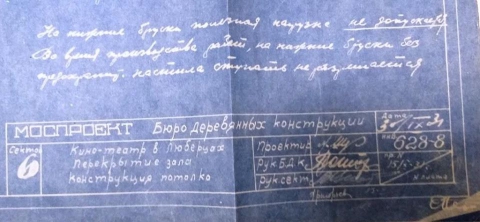 На нижние бруски полезная нагрузка не допускается
Во время производства работ на нижние бруски без
настила ступать не разрешается
МОСПРОЕКТ Бюро Деревянных конструкций
Дата
Сектор
6
Кино-театр в Люберцах
Перекрытие зала
Конструкция потолка
Проектир.
Рук.Б.Д.К.
Рук.сект.
инв.
628-8